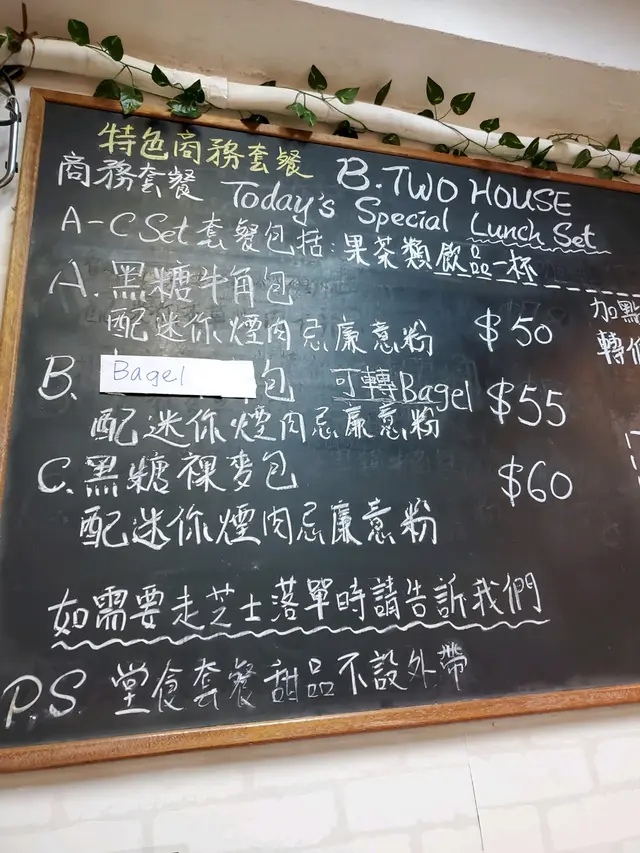 特色商務套餐
商務套餐 B.TWO HOUSE
Today's Special Lunch Set
A-C Set 套餐包括:果茶類飲品一杯
A. 黑糖牛角包
配迷你煙肉忌廉意粉 $50
加點
轉
B. Bagel 包 可轉Bagel $55
配迷你煙肉忌廉意粉
C. 黑糖裸麥包 $60
配迷你煙肉忌廉意粉
如需要走芝士落單時請告訴我們
P.S. 堂食套餐甜品不設外帶